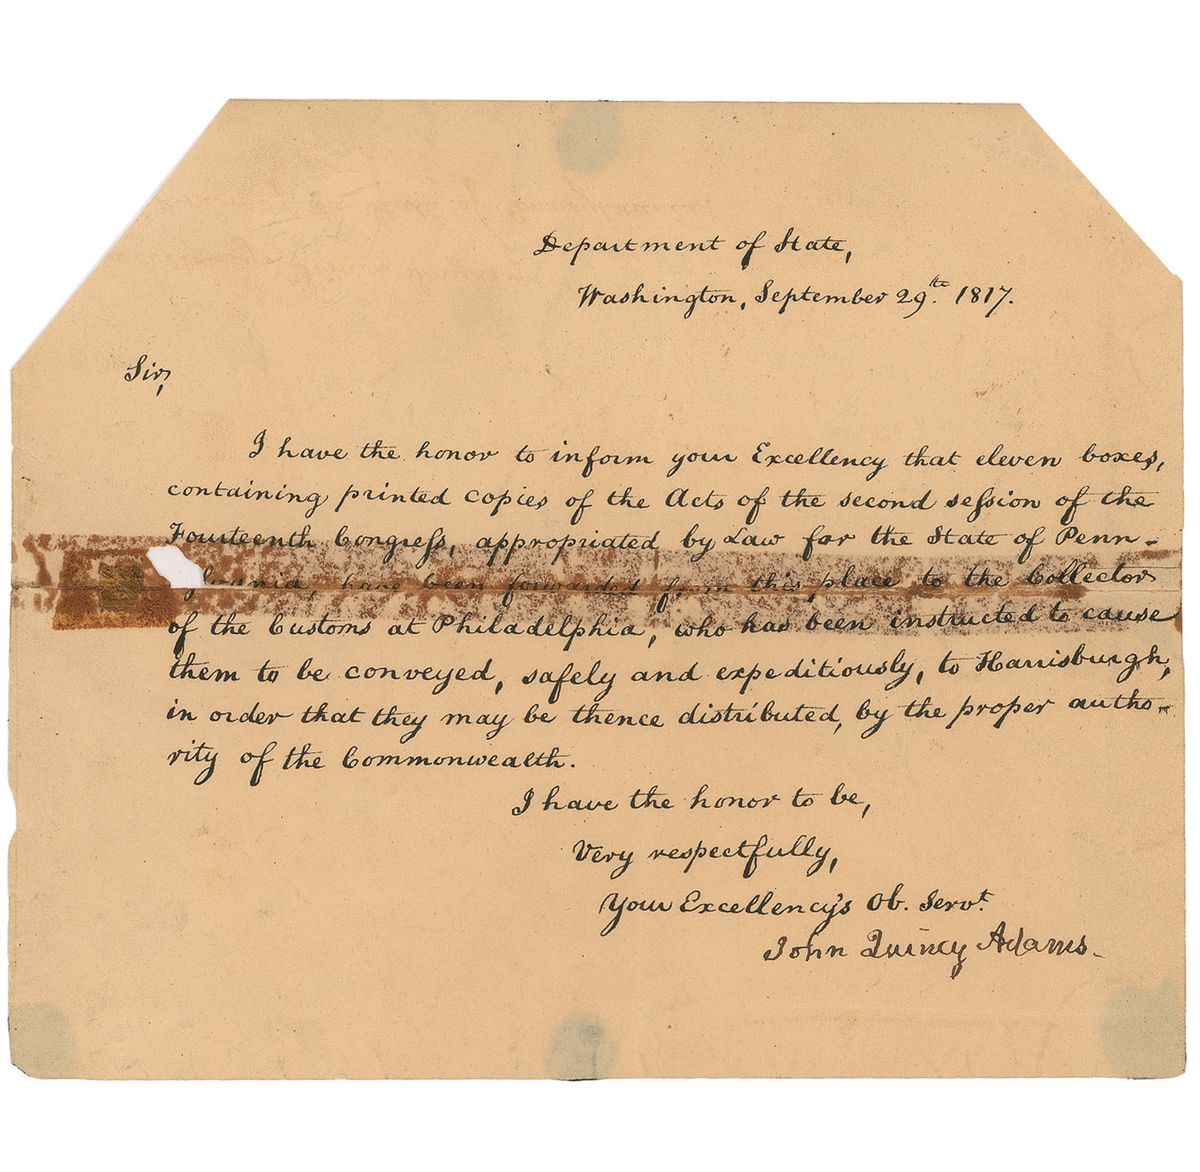 Department of State,
Washington, September 29th. 1817.
Sir,
I have the honor to inform your Excellency that eleven boxes,
containing printed copies of the Acts of the second session of the
Fourteenth Congress, appropriated by Law for the State of Penn-
ylvania, have been forwarded from this place to the Collector
of the Customs at Philadelphia, who has been instructed to cause
them to be conveyed, safely and expeditiously, to Harrisburgh,
in order that they may be thence distributed, by the proper autho-
rity of the Commonwealth.
I have the honor to be,
Very respectfully,
Your Excellency's Ob. Servt.
John Quincy Adams.